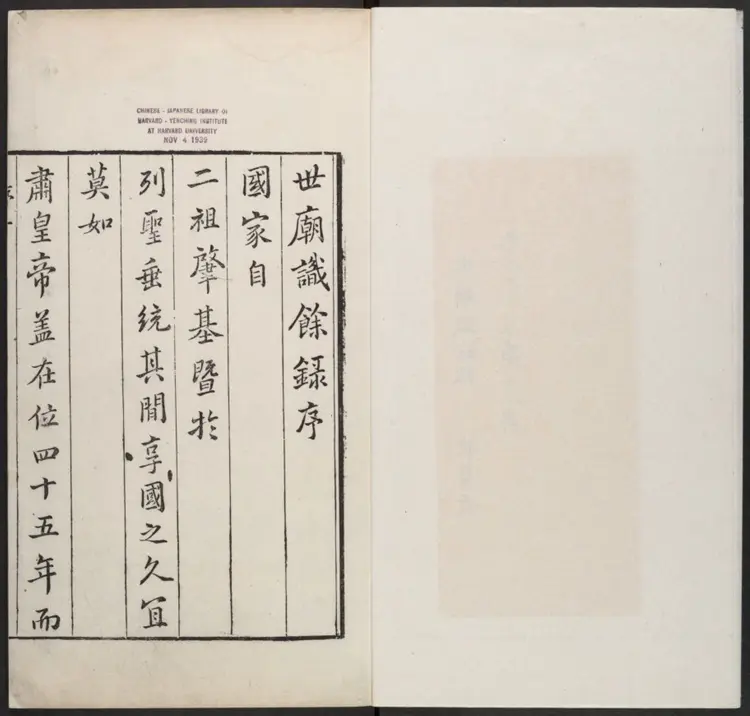 CHINESE - JAPANESE LIBRARY OF
HARVARD - YENCHING INSTITUTE
AT HARVARD UNIVERSITY
NOV 4 1939
世廟識餘錄序
國家自
二祖肇基暨於
列聖垂統其間享國之久冝
莫如
肅皇帝盖在位四十五年而